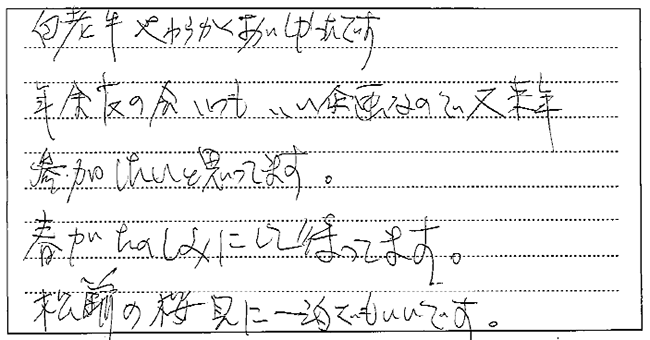 白老牛やわらかくおいしかったです
年金友の会いつもいい企画なので又来年
参加したいと思ってます。
春がたのしみにして待ってます。
松前の桜見に一泊でもいいです。